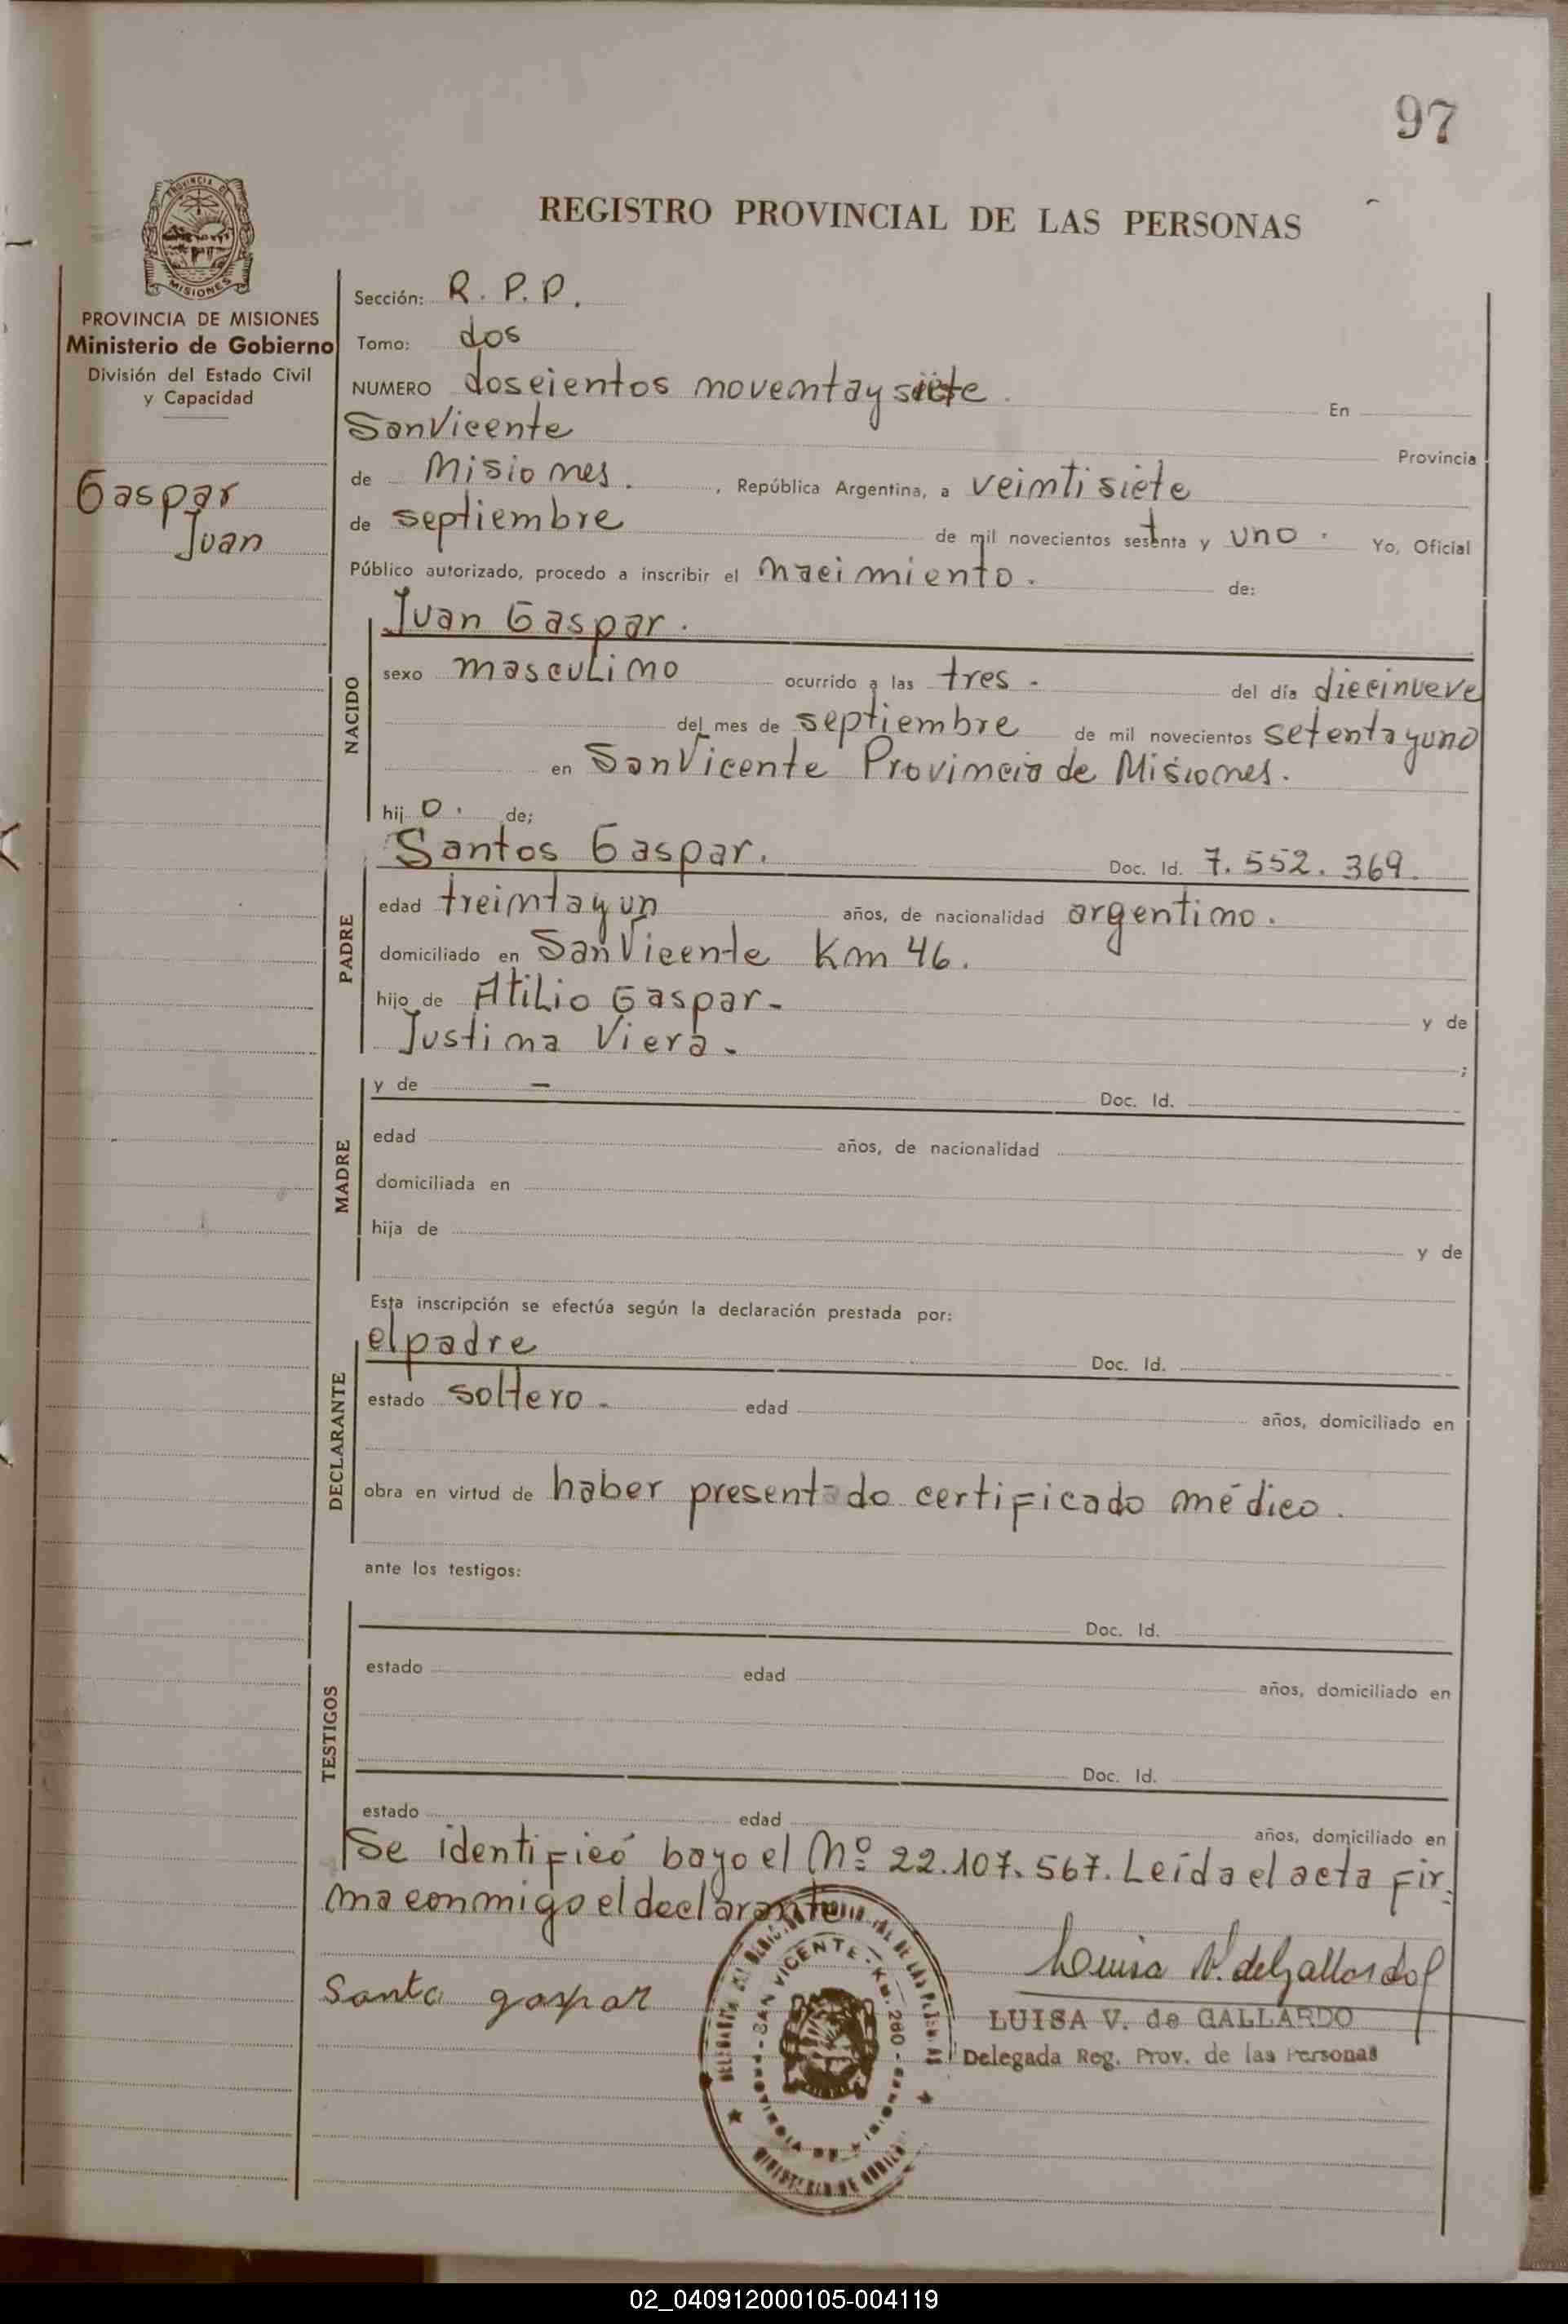 97
REGISTRO PROVINCIAL DE LAS PERSONAS
PROVINCIA DE MISIONES
Ministerio de Gobierno
División del Estado Civil
y Capacidad
Gaspar
Juan
Sección: R. P. P.
Tomo: dos
NUMERO doscientos noventa y siete. En
San Vicente Provincia
de Misiones. , República Argentina, a veintisiete
de septiembre de mil novecientos setenta y uno. Yo, Oficial
Público autorizado, procedo a inscribir el nacimiento. de:
NACIDO
Juan Gaspar.
sexo masculino ocurrido a las tres - del día diecinueve
del mes de septiembre de mil novecientos setenta y uno
en San Vicente Provincia de Misiones.
hij o. de;
PADRE
Santos Gaspar. Doc. Id. 7.552.369.
edad treinta y un años, de nacionalidad argentino.
domiciliado en San Vicente Km 46.
hijo de Atilio Gaspar - y de
Justina Viera - ;
MADRE
y de — Doc. Id.
edad años, de nacionalidad
domiciliada en
hija de y de
Esta inscripción se efectúa según la declaración prestada por:
DECLARANTE
el padre Doc. Id.
estado soltero - edad años, domiciliado en
obra en virtud de haber presentado certificado médico.
ante los testigos:
TESTIGOS
Doc. Id.
estado edad años, domiciliado en
Doc. Id.
estado edad años, domiciliado en
Se identificó bayo el Nº 22.107.567. Leída el acta fir=
ma conmigo el declarante
Santo gaspar
Luisa V. de Gallardo
LUISA V. de GALLARDO
Delegada Reg. Prov. de las Personas
SAN VICENTE - KM. 280 -
02_040912000105-004119